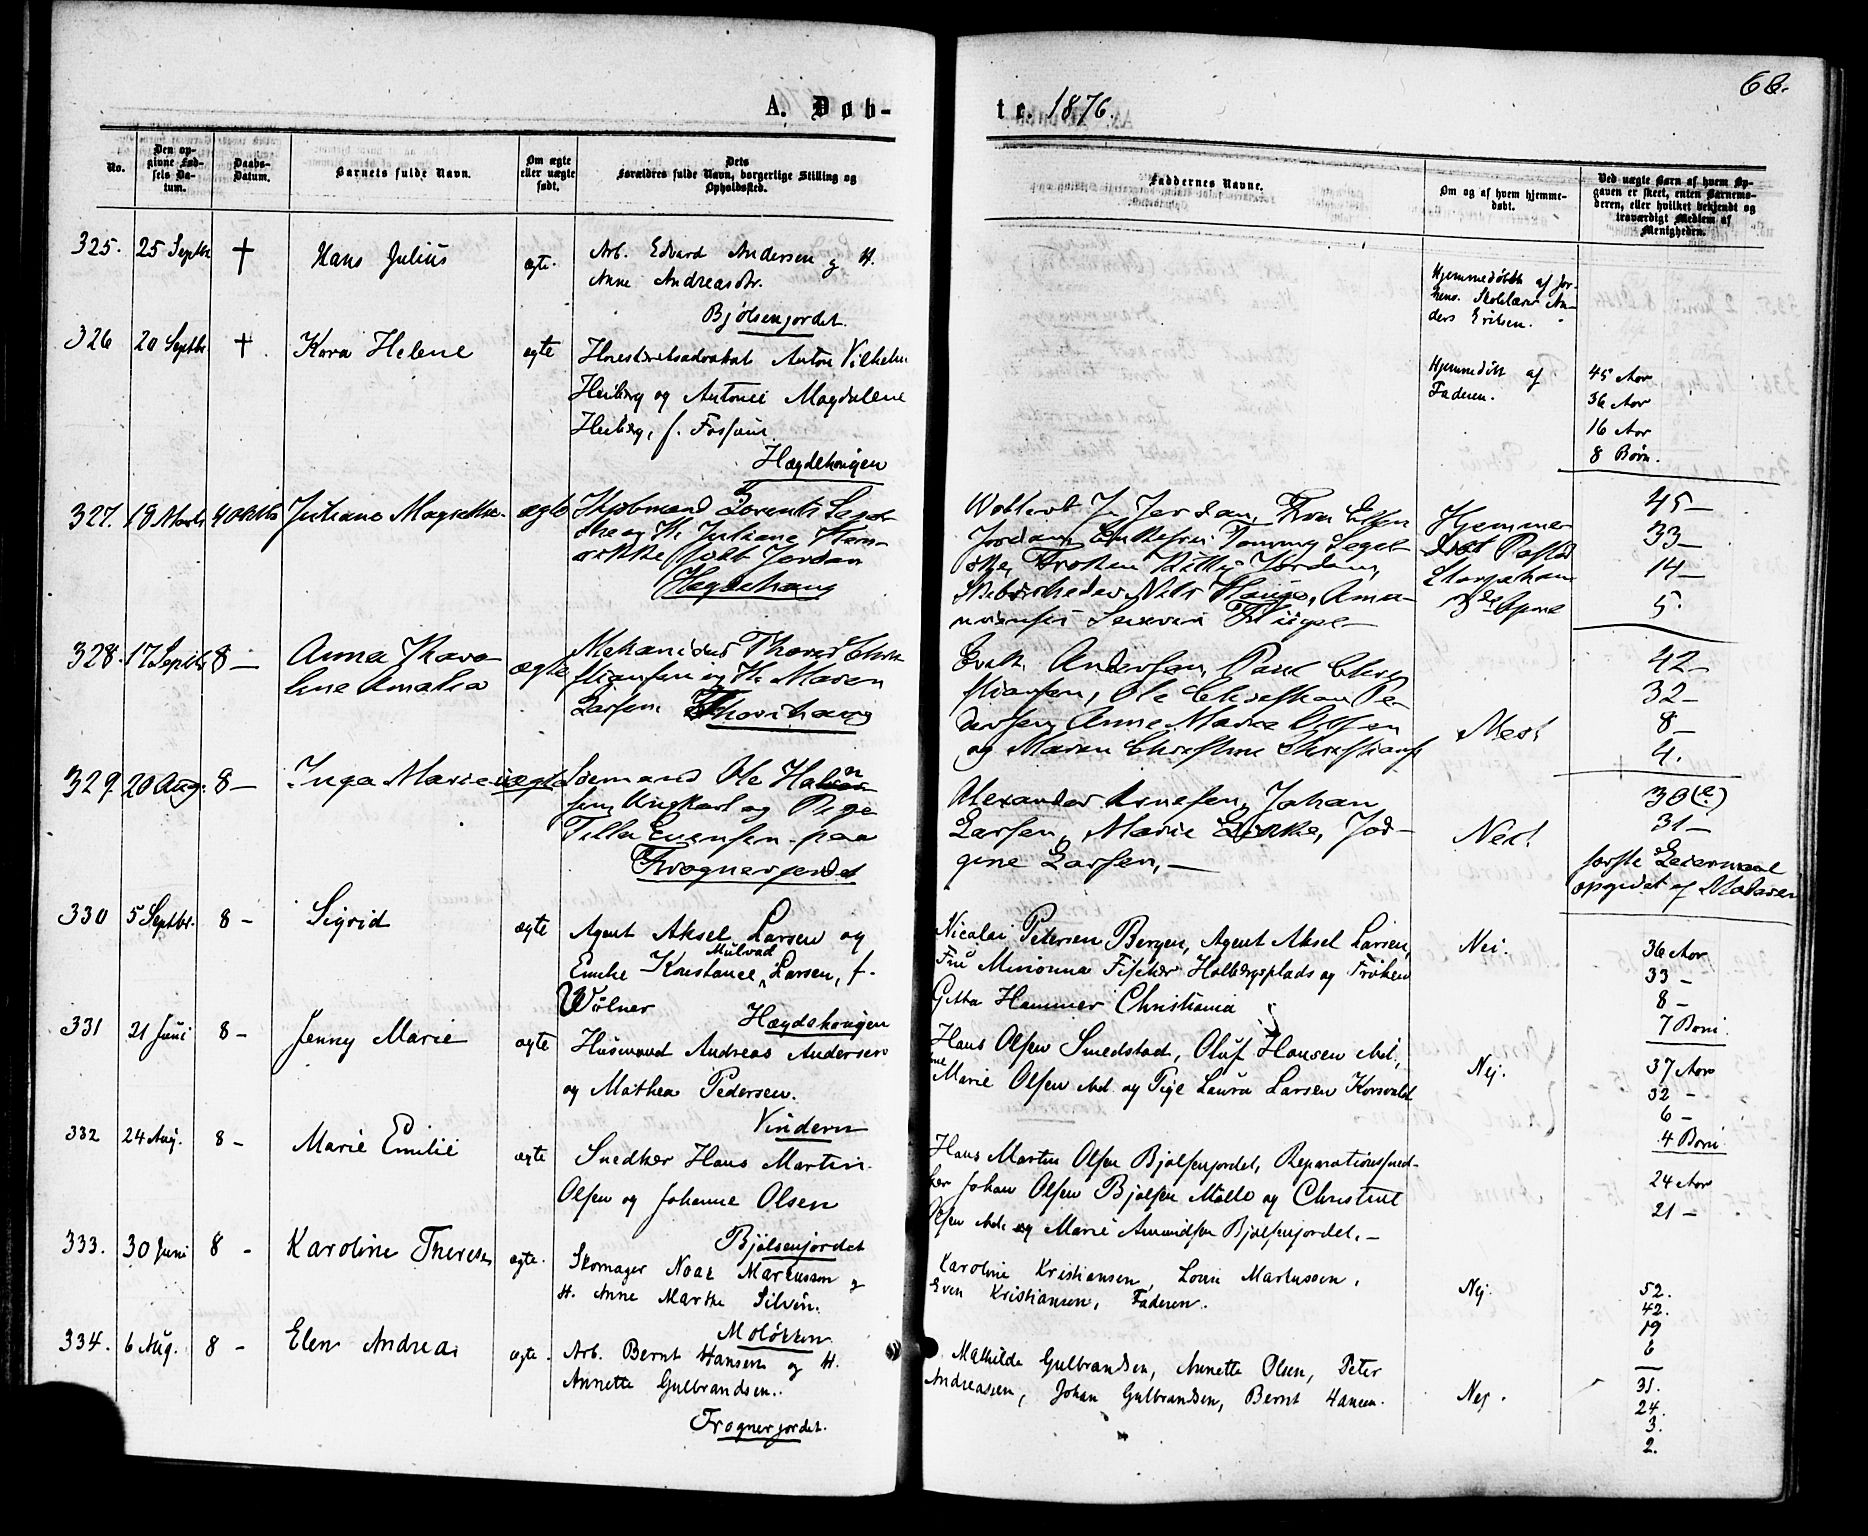 A. Døb-
te. 1876.
66.
No.
Den op-
givne Fød-
sels Da-
tum.
Daabs-
Datum.
Barnets fulde Navn.
Om ægte
eller uægte
født.
Dets
Forældres fulde Navn, borgerlige Stilling og
Opholdssted.
Faddernes Navne.
Om og af hvem hjemme-
døbt.
Ved uægte Børn af hvem Op-
gaven er skeet, enten Barnemo-
deren, eller hvilket bekjendt og
troværdigt Medlem af
Menigheden.
325. 25 Septbr † Hans Julius ægte.
Arb. Edvard Andersen og H.
Anne Andreasdtr.
Bjølsenjordet.
Hjemmedøbt af
Skolelærer An-
ders Eriksen.
326 20 Septbr † Kara Helene ægte
Høiesteretsadvokat Anton Vilhelm
Heiberg og Antonie Magdalene
Heiberg, f. Fossum
Hægdehougen
Hjemmedøbt af
Faderen.
45 Aar
36 Aar
16 Aar
8 Børn.
327. 18 Marts 4 Oktbr Juliane Magrethe ægte
Kjøbmand Lorents Segel-
cke og H. Juliane Hen-
rikke født Jordan
Hægdehoug
Jordan, Enkefru Fanny Segel-
cke, Frøken Kitty Jordan,
Nils Hauge,
Hjemme-
døbt
45 —
33 —
14 —
5.
328. 17 Septbr 8 — Anna Karo-
line Amalia ægte
Mekanikus Thorvald Chri-
stiansen og H. Maren
Larsen
Andersen, Paul Chri-
stiansen, Ole Christian Pe-
dersen, Anne Marie Olsen
og Maren Christine Christians
Nei
42 —
32 —
8 —
4.
329. 20 Aug. 8 — Inga Marie uægte
Sømand Ole Hansen
Ungkarl og Pige
Tilla Evensen paa
Frognerjordet
Alexander Arnesen, Johan
Larsen, Marie Lykke, Jør-
gine Larsen, —
Nei
30 (?)
31 —
første Leiermaal
opgivet af Moderen
330 5 Septbr. 8 — Sigrid ægte
Agent Aksel Larsen og
Mulvad
Emilie Konstance Larsen, f.
Wølner Hægdehougen
Nicolai Petersen Bergen, Agent Aksel Larsen,
Fru Minonna Fischer Holbergsplads og Frøken
Gitta Hammer Christiania
Nei.
36 Aar
33 —
8 —
7 Børn.
331 21 Juni 8 — Jenny Marie ægte
Husmand Andreas Andersen
og Mathea Pedersen.
Vindern
Hans Olsen Smedstad, Oluf Hansen ibd,
Marie Olsen ibd og Pige Laura Larsen Korsvold
Nej.
37 Aar
32 —
6 —
4 Børn
332 24 Aug. 8 — Marie Emilie ægte
Snedker Hans Martin
Olsen og Johanne Olsen
Bjølsenjordet
Hans Martin Olsen Bjølsenjordet, Reparationssned-
ker Johan Olsen Bjølsen Mølle og Christine
Olsen ibd. og Marie Amundsen Bjølsenjordet. —
24 Aar
21 —
333. 30 Juni 8 — Karoline Therese ægte.
Skomager Noak Markussen og
H. Anne Marthe Silvén.
Moløkken
Karoline Kristiansen, Lovise Markussen,
Even Kristiansen, Faderen.
Nej.
52.
42.
19
6
334. 6 Aug. 8 — Elen Andrea ægte.
Arb. Bernt Hansen og H.
Annette Gulbrandsen.
Frognerjordet.
Mathilde Gulbrandsen, Annette Olsen, Peter
Andreassen, Johan Gulbrandsen, Bernt Hansen.
Nej.
31.
24.
3.
2.